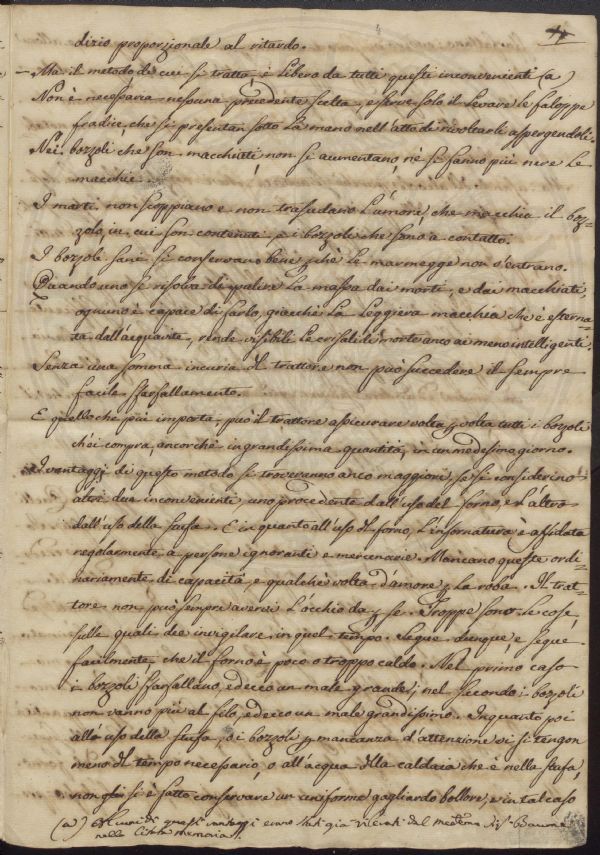 dizio proporzionale al ritardo.
Ma il metodo di cui si tratta è libero da tutti questi inconvenienti (a)
Non è necessaria nessuna precedente scelta, e serve solo il levare le faloppe
fradice, che si presentan sotto la mano nell'atto di rivoltarli aspergendoli.
Nei bozzoli, che son macchiati, non si aumentano, nè si fanno più nere le
macchie.
I morti non scoppiano e non trasudano l'umore, che macchia il boz-
zolo, in cui son contenuti, e i bozzoli che sono a contatto.
I bozzoli sani si conservano bene, pchè le marmegge non v'entrano.
Quando uno si risolva di pulire la massa dai morti, e dai macchiati,
ognuno è capace di farlo, giacchè la leggiera macchia che è esterna-
ta dall'acquavite, rende visibili le crisalidi morte anco ai meno intelligenti.
Senza una somma incuria del trattore non può succedere il sempre
facile sfarfallamento.
E quello che più importa, può il trattore assicurare volta p volta tutti i bozzoli
ch'ei compra, ancorchè in grandissima quantità, in un medesimo giorno.
I vantaggi di questo metodo si troveranno anco maggiori, se si considerino
altri due inconvenienti uno procedente dall'uso del forno, e l'altro
dall'uso della stufa. E in quanto all'uso del forno, l'infornatura è affidata
regolarmente a persone ignoranti e mercenarie. Mancano queste ordi-
nariamente di capacità, e qualche volta d'amore p la roba. Il trat-
tore non può sempre averci l'occhio da p se. Troppe sono le cose,
sulle quali dee invigilare in quel tempo. Segue dunque, e segue
facilmente che il forno è poco o troppo caldo. Nel primo caso
i bozzoli sfarfallano, ed ecco un male grande; nel secondo i bozzoli
non vanno più al filo, ed ecco un male grandissimo. In quanto poi
all'uso della stufa, o i bozzoli p mancanza d'attenzione vi si tengon
meno del tempo necessario, o all'acqua della caldaia che è nella stufa,
non gli si è fatto conservare un uniforme gagliardo bollore, e in tal caso
(a) Alcuni di questi vantaggi erano stati già rilevati dal medesimo Sigr. Baumé
nella citata memoria.